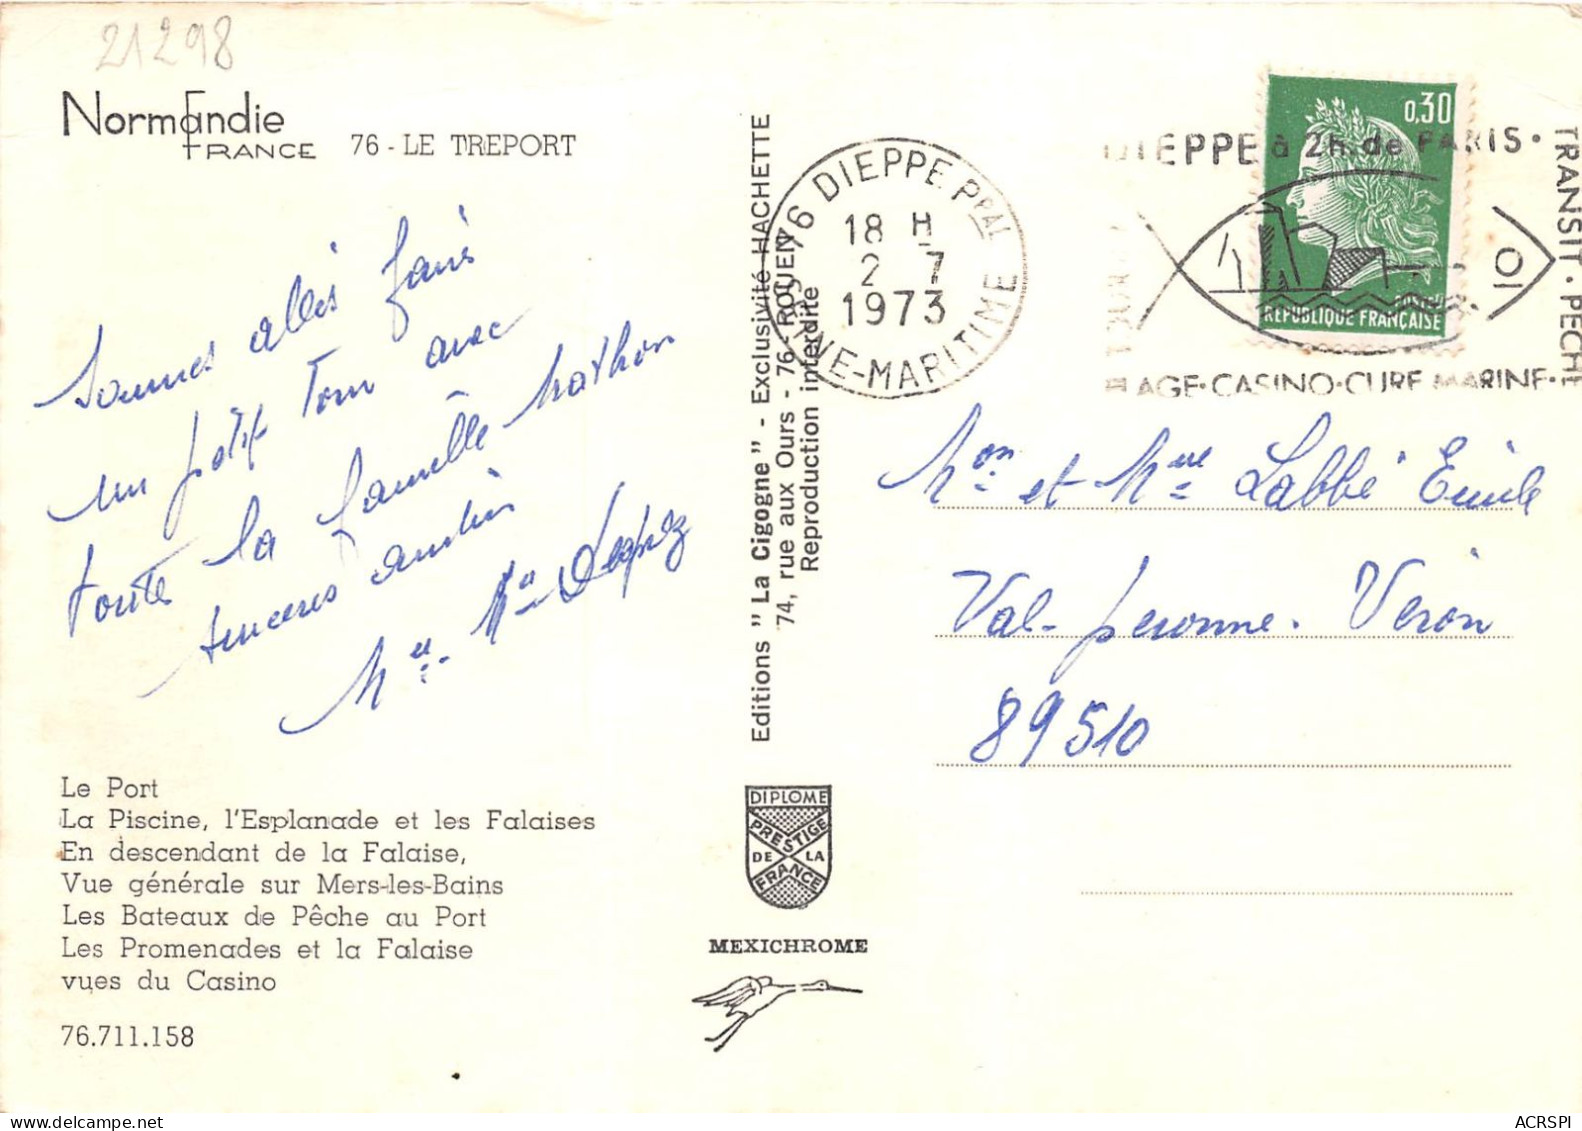 21298
Normandie
FRANCE
76 - LE TREPORT
Sommes allés faire
un petit tour avec
toute la famille Mathon
sinceres amitiés
Mr Mme
Le Port
La Piscine, l'Esplanade et les Falaises
En descendant de la Falaise,
Vue générale sur Mers-les-Bains
Les Bateaux de Pêche au Port
Les Promenades et la Falaise
vues du Casino
76.711.158
Editions "La Cigogne" - Exclusivité HACHETTE
74, rue aux Ours - 76 - ROUEN
Reproduction interdite
DIPLOME
PRESTIGE
DE LA
FRANCE
MEXICHROME
76 DIEPPE Ppal
18 H
2 7
1973
SEINE-MARITIME
DIEPPE à 2h. de PARIS ·
TRANSIT · PECHE
PLAGE · CASINO · CURE MARINE ·
0,30
POSTES
REPUBLIQUE FRANÇAISE
Mon et Mme Labbé Emile
Val-peronne. Veron
89510
ACRSPI